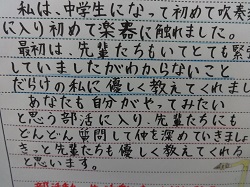 私は、中学生になって初めて吹奏
に入り初めて楽器に触れました。
最初は、先輩たちもいてとても緊
していましたがわからないこと
だらけの私に優しく教えてくれまし
あなたも自分がやってみたい
と思う部活に入り、先輩たちにも
どんどん質問して仲を深めていきまし
きっと先輩たちも優しく教えてくれら
と思います。